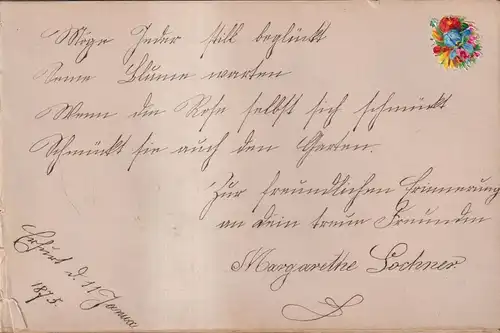 Möge Jeder still beglückt
Seine Blume warten
Wenn die Rose selbst sich schmückt
Schmückt sie auch den Garten.
Zur freundlichen Erinnerung
an Dein treue Freundin
Margarethe Lochner.
Erfurt d. 11 Januar
1875.